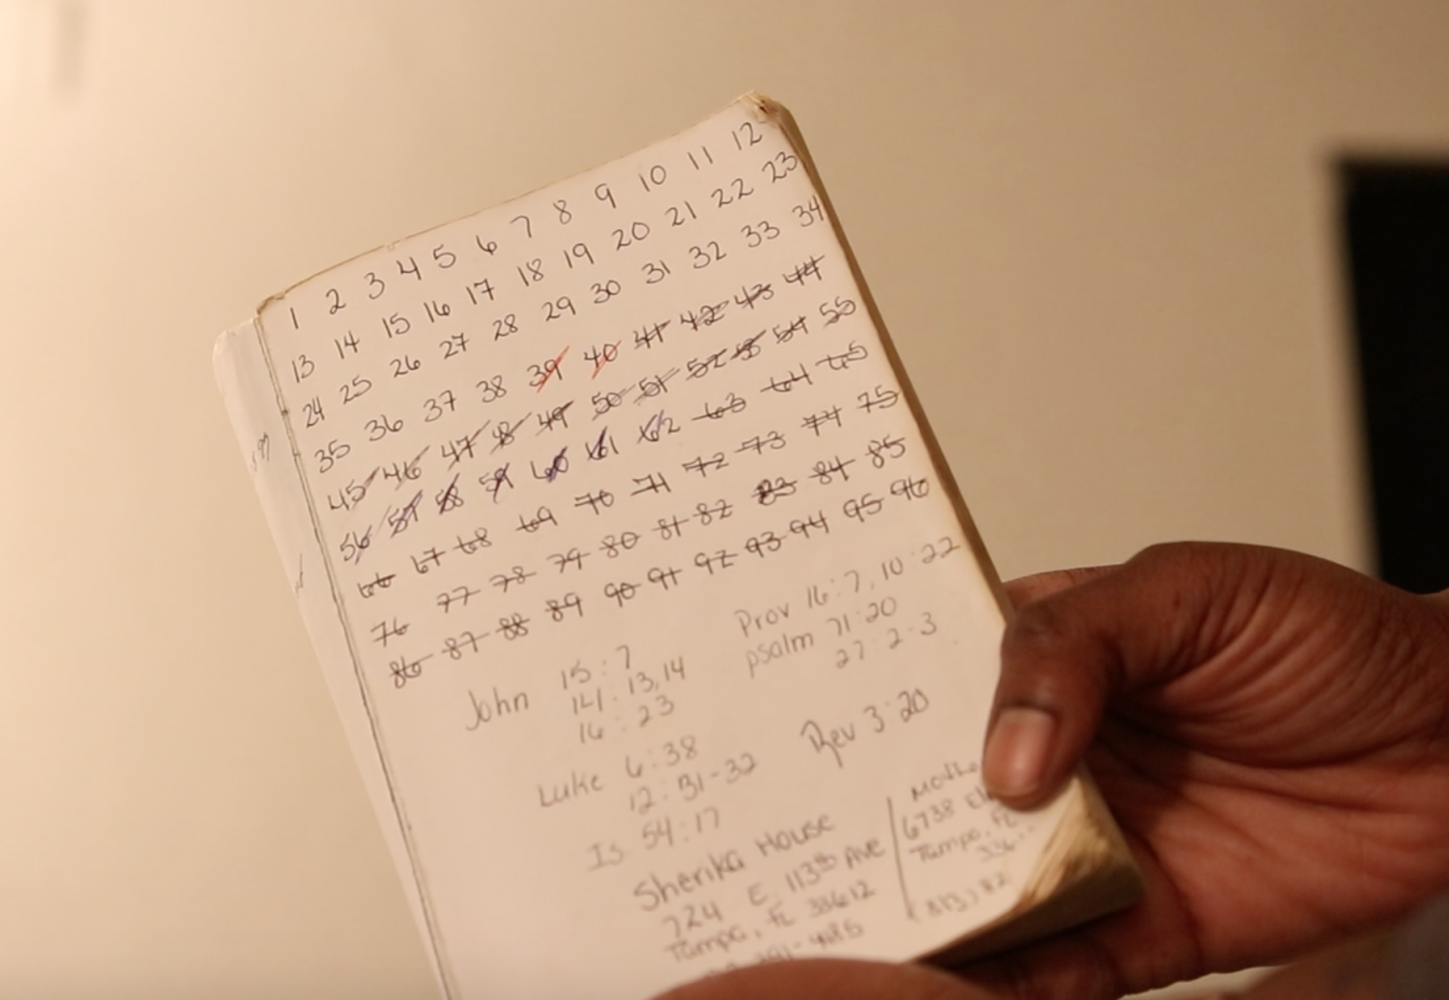 1 2 3 4 5 6 7 8 9 10 11 12
13 14 15 16 17 18 19 20 21 22 23
24 25 26 27 28 29 30 31 32 33 34
35 36 37 38 39 40 41 42 43 44
45 46 47 48 49 50 51 52 53 54 55
56 57 58 59 60 61 62 63 64 65
66 67 68 69 70 71 72 73 74 75
76 77 78 79 80 81 82 83 84 85
86 87 88 89 90 91 92 93 94 95 96
John 15:7
14:13,14
16:23
Prov 16:7, 10:22
psalm 71:20
27:2-3
Luke 6:38
12:31-32
Rev 3:20
Is 54:17
Sherika House
724 E. 113th Ave
Tampa, FL 33612
6738
Tampa, FL
(813) 82